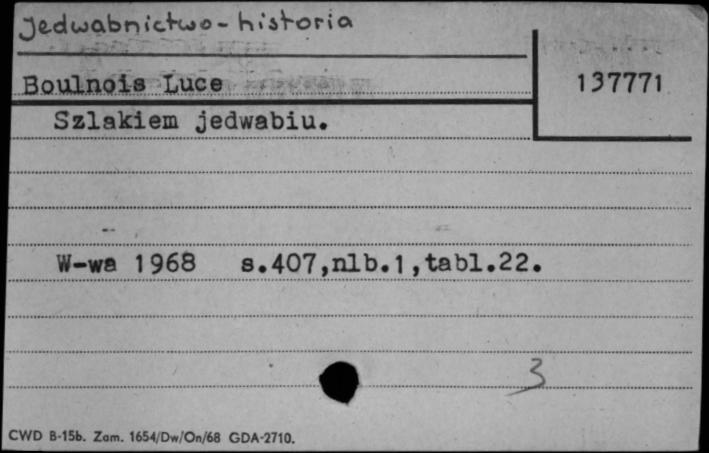 Jedwabnictwo - historia
Boulnois Luce
137771
Szlakiem jedwabiu.
W-wa 1968 s.407,nlb.1,tabl.22.
3
CWD B-15b. Zam. 1654/Dw/On/68 GDA-2710.